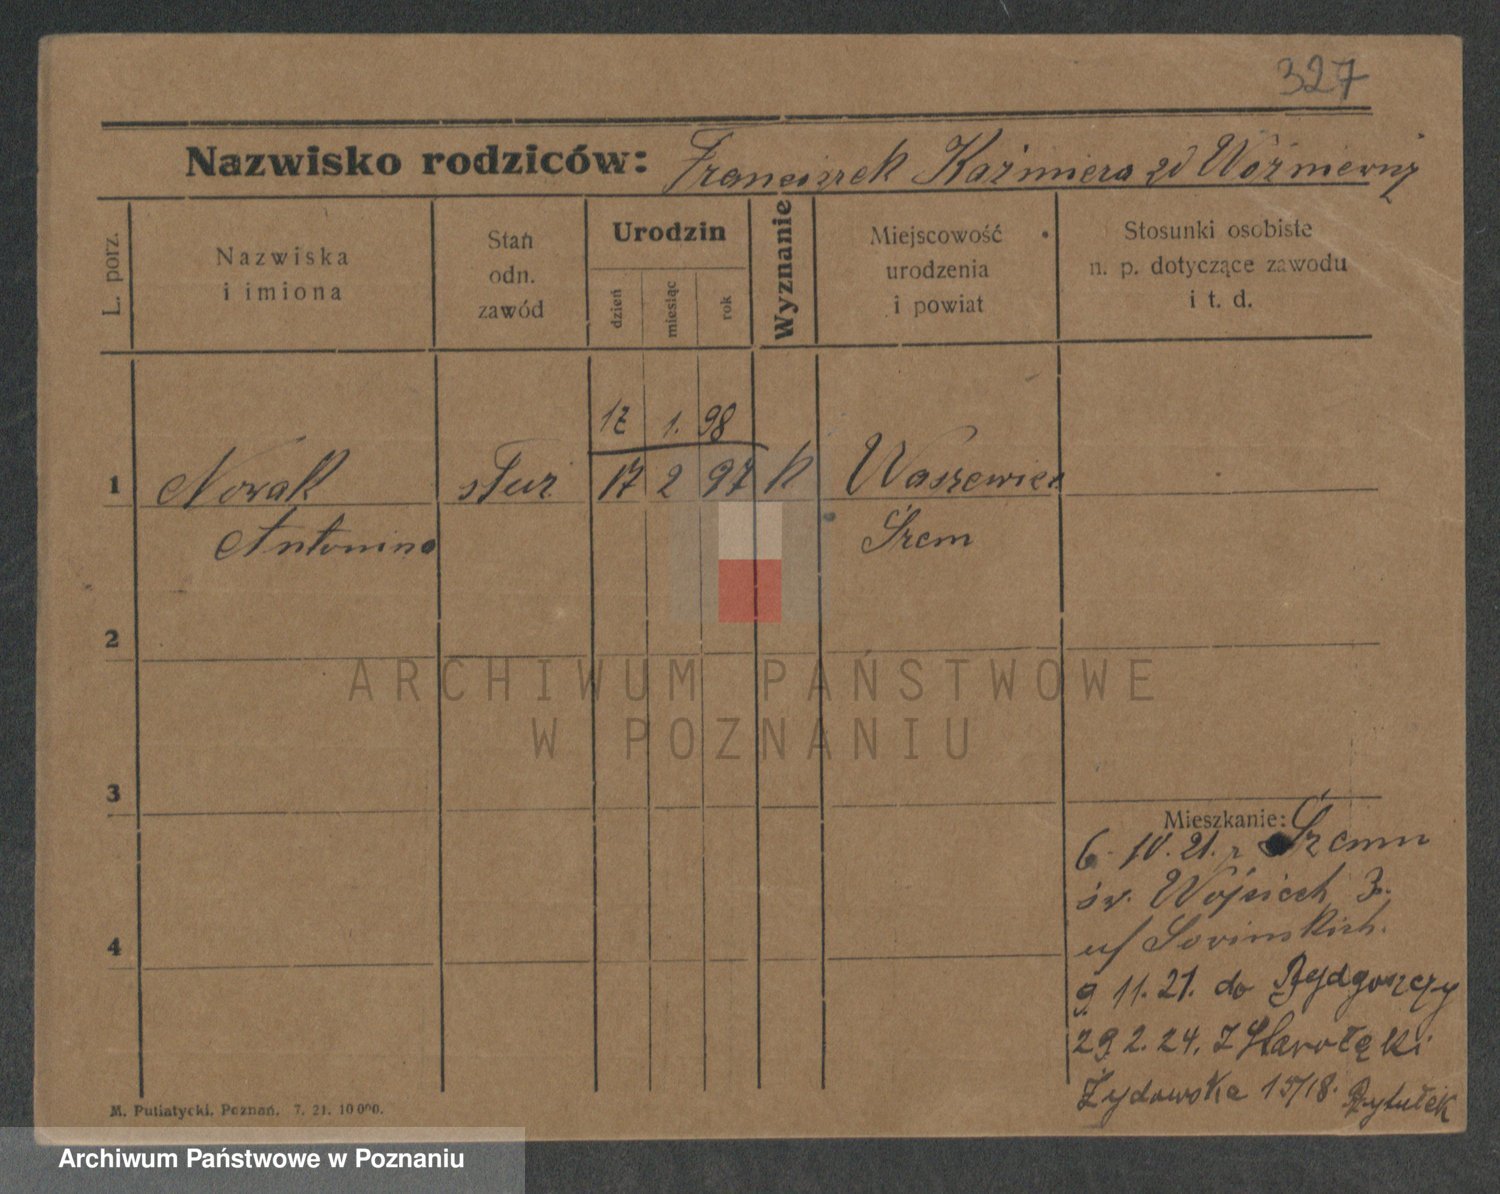 327
Nazwisko rodziców: Franciszek Kaźmiera zd Woźniewny
L. porz.
Nazwiska
i imiona
Stań
odn.
zawód
Urodzin
dzień
miesiąc
rok
Wyznanie
Miejscowość
urodzenia
i powiat
Stosunki osobiste
n. p. dotyczące zawodu
i t. d.
17 1. 98
1 Nowak służ 17 2 97 k
Antonina Śrem
2
ARCHIWUM PAŃSTWOWE
W POZNANIU
3
Mieszkanie:
6. 10. 21. z Śremu
św. Wojciech 3.
4
u/
9 11. 21. do Bydgoszczy
29 2. 24. z Starołęki
Żydowska 15/18. Przytułek
M. Putiatycki, Poznań. 7. 21. 10000.
Archiwum Państwowe w Poznaniu